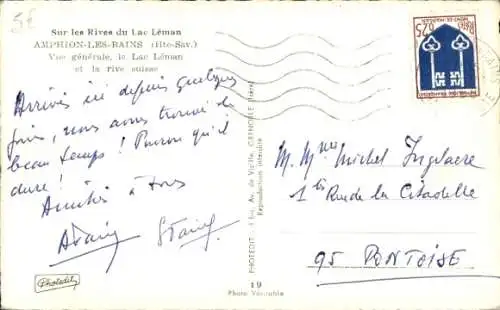 5€
Sur les Rives du Lac Léman
AMPHION-LES-BAINS (Hte-Sav.)
Vue générale, le Lac Léman
et la rive suisse
Arrivés ici depuis quelques
jours, nous avons trouvé du
beau temps ! Pourvu qu'il
dure !
Amitiés à tous
Photedit
PHOTEDIT - Av. de Vizille, GRENOBLE (Isère)
Reproduction interdite
19
Photo Véritable
0,25
M. Mme Michel Ingelaere
1 Rue de la Citadelle
95 PONTOISE